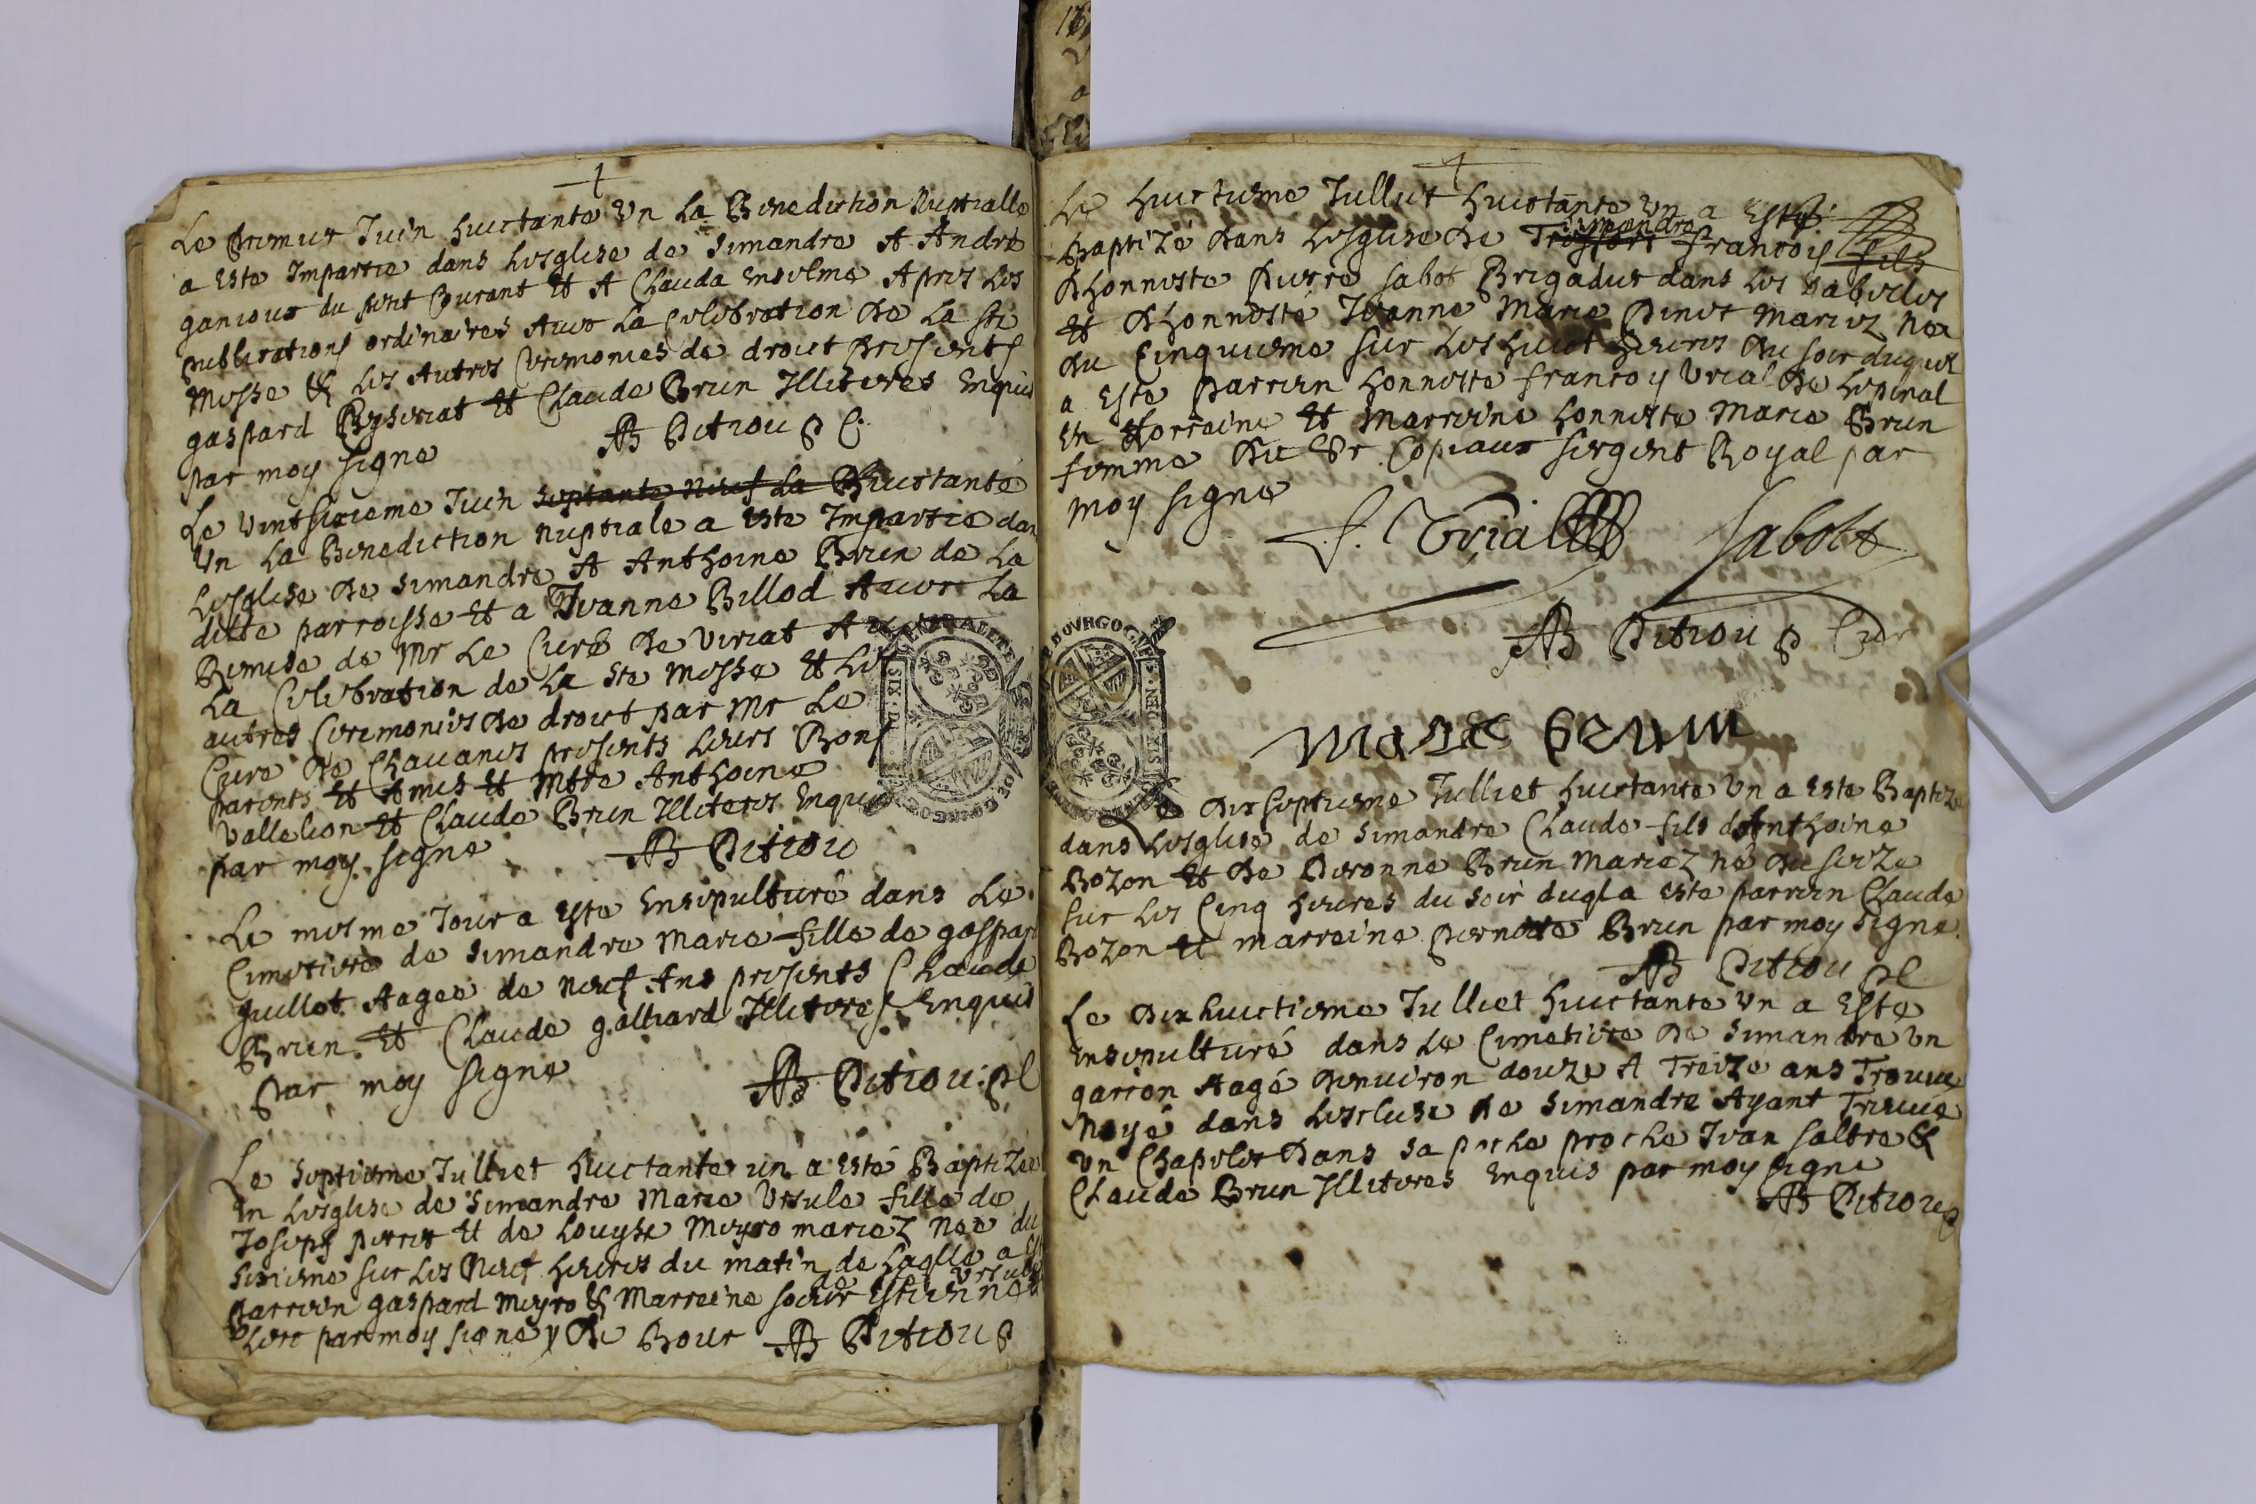 Le premier Juin huictante un la Benediction Nuptialle
a este Impartie dans lesglise de simandre A André
ganieur du Pont Durant et A Clauda enselme Apres les
publications ordinaires Avec la celebration de la ste
messe & les Autres Ceremonies de droict presents
gaspard Byseriat et Claude Brun Illiteres Enquis
par moy signe AB Petiou p C.
Le vintsixieme Juin septante neuf la B huictante
un la Benediction nuptiale a este Impartie dans
lesglise de simandre A Anthoine Brun de la
ditte parroisse et a Jeanne Billod Avec la
Remise de Mr le Curé de viriat A
la Celebration de la ste messe et les
autres Ceremonies de droict par Mr le
Cure de Chavanes presents leurs Bons
parents et Amis et Mtre Anthoine
Vallelion et Claude Brun Illiteres Enquis
par moy signe AB Petiou
Le mesme Jour a este ensepulturé dans le
Cimetiere de simandre Marie fille de gaspard
guillot Aagee de neuf Ans presents Claude
Brun et Claude galliard Illiteres Enquis
par moy signe AB Petiou pC
Le septieme Julliet huictante un a esté Baptizée
en lesglise de Simandre Marie Ursule fille de
Joseph perret et de louyse Meyro mariez nee du
sixieme sur les neuf heures du matin de laqlle a
parrein gaspard Meyro & Marreine soeur de Estienne Ursule
par moy signe y de Bour AB Petiou p
Le huictieme Julliet huictante un a Esté
Baptizé dans lesglise de Tresfort simandre francois fils
dhonneste Pierre sabot Brigadier dans les Gabeles
et dhonneste Jeanne Marie Pinet mariez nea
du Cinquieme sur les huict heures du soir duquel
a Este parrein honneste francoy Vrial de lepinal
en Lorraine et Marreine honneste Marie Brun
femme du Sr Copiaux sergent Royal par
moy signe
f. Vrial Sabott
AB Petiou p Cure
marie brun
Le dixseptieme Julliet huictante un a este Baptizé
dans lesglise de simandre Claude fils dAnthoine
Bozon et de Peronne Brun Mariez né du seize
sur les Cinq heures du soir duql a este parrein Claude
Bozon et marreine pernette Brun par moy signe
AB Petiou pC
Le dixhuictieme Julliet huictante un a Este
ensepulturé dans le Cimetiere de simandre un
garcon Aagé denviron douze A Treize ans Trouve
Noyé dans lescluse de simandre Ayant Treuve
un Chapelet dans sa poche proche Jean saltre &
Claude Brun Illiteres Enquis par moy signe
AB Petiou p